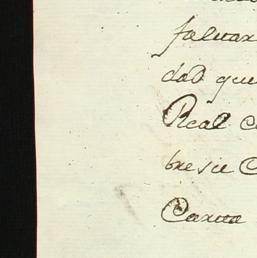 faltar
dad que
Real C
bre su C
Carta